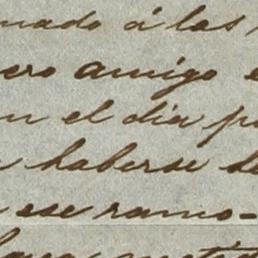 mado á las
ero amigo e
n el dia p
haberse de
ese ramo-